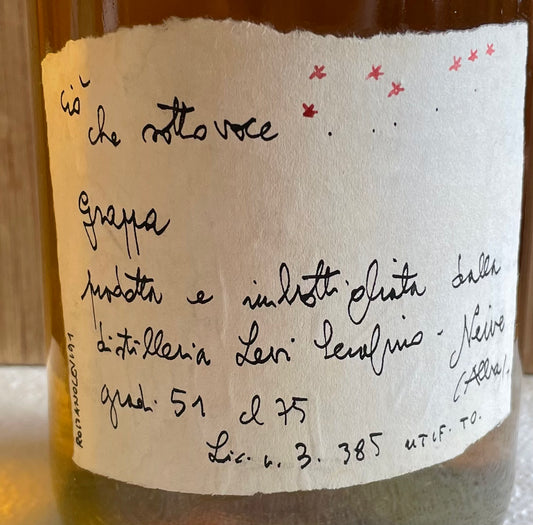 ciò
che sottovoce . . . . .
Grappa
prodotta e imbottigliata dalla
distilleria Levi Serafino - Neive
(Alba).
gradi 51 cl 75
Lic. n. 3. 385 UTIF. TO.
ROMANOLEVI91